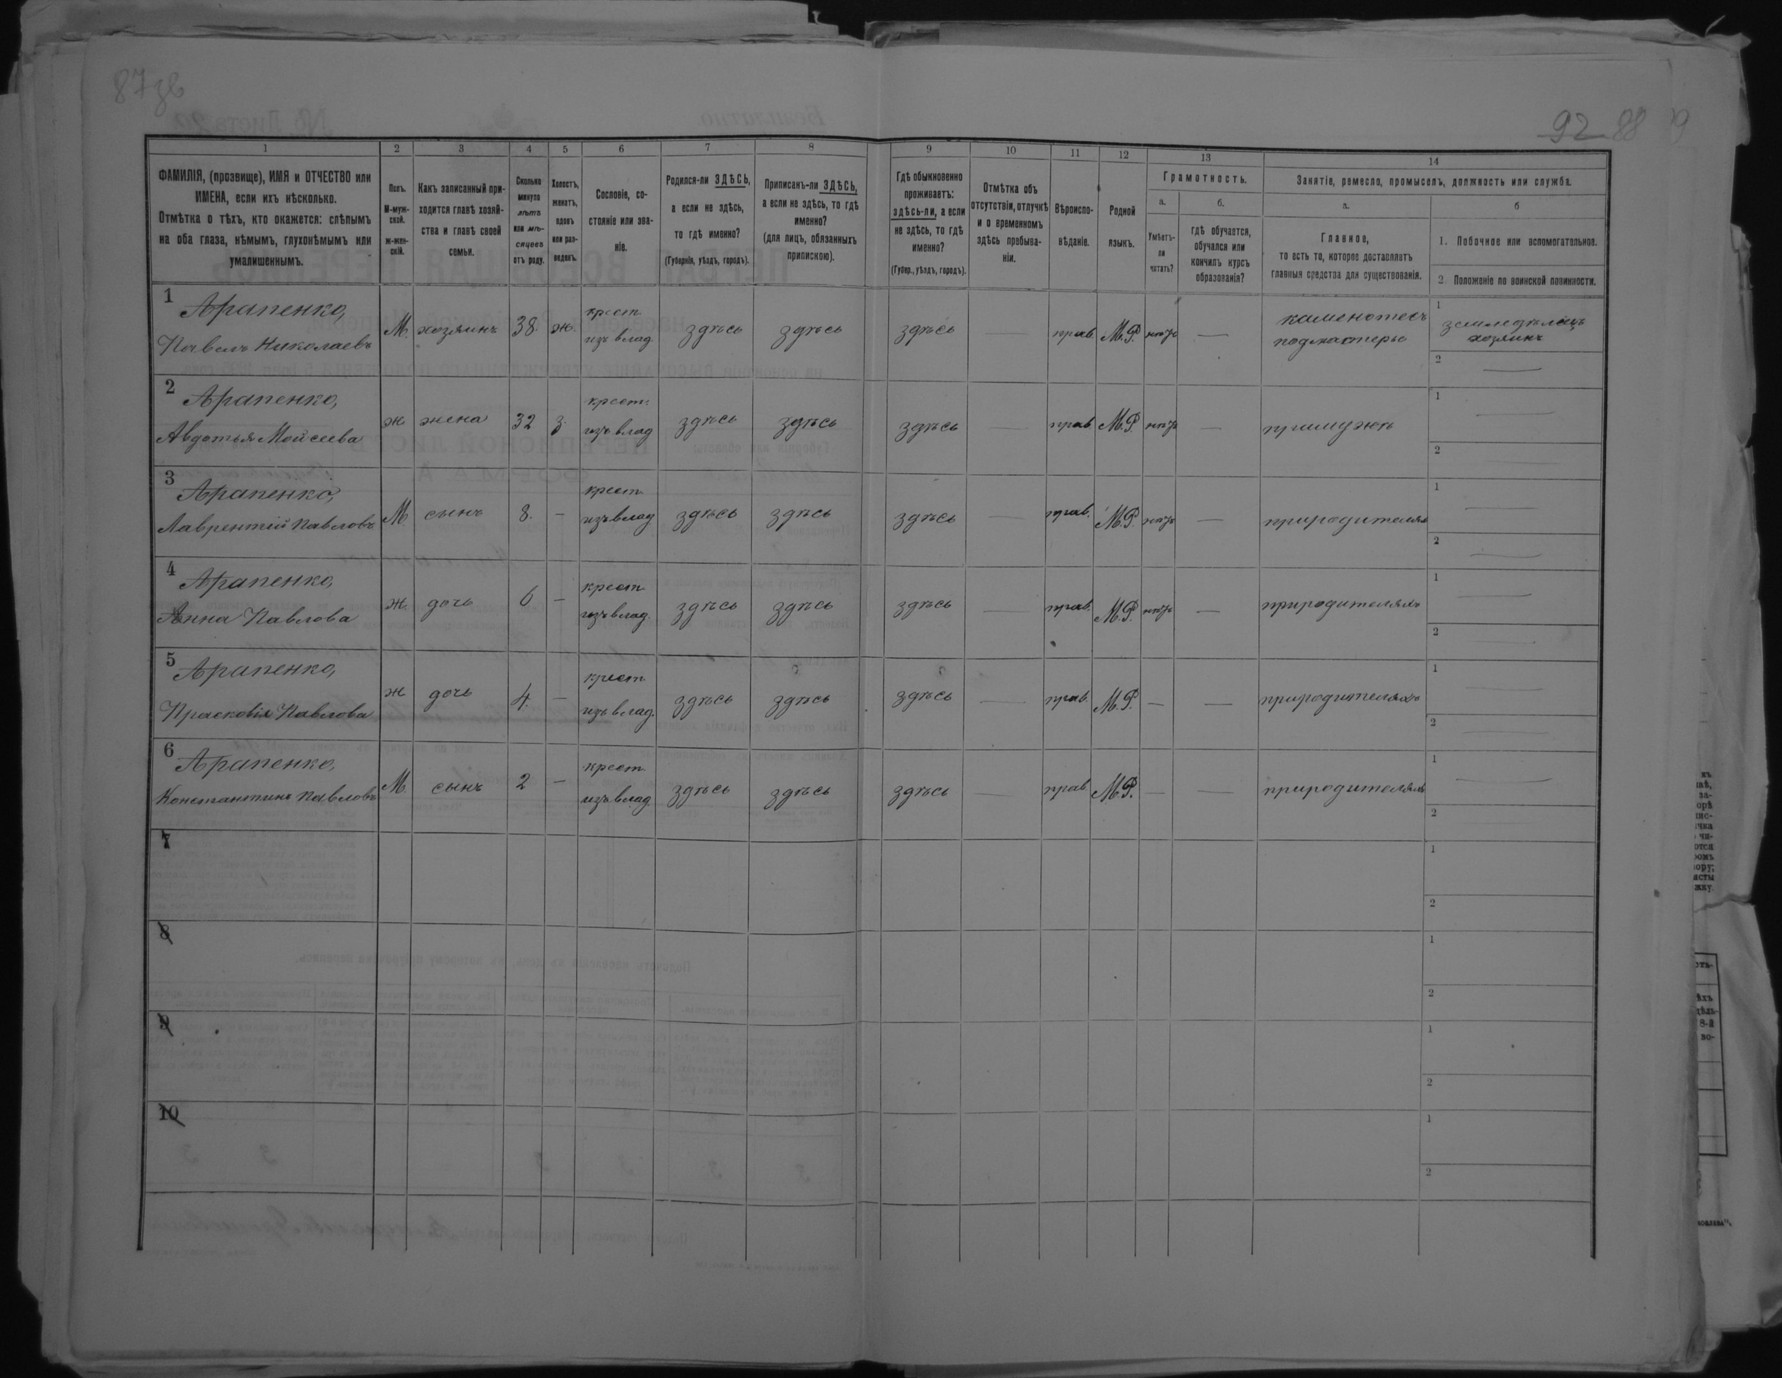 87 об
92 88
1 2 3 4 5 6 7 8 9 10 11 12 13 14
ФАМИЛІЯ, (прозвище), ИМЯ и ОТЧЕСТВО или
ИМЕНА, если ихъ нѣсколько.
Отмѣтка о тѣхъ, кто окажется: слѣпымъ
на оба глаза, нѣмымъ, глухонѣмымъ или
умалишеннымъ.
Полъ.
М-муж-
ской.
ж-жен-
скій.
Какъ записанный при-
ходится главѣ хозяй-
ства и главѣ своей
семьи.
Сколько
минуло
лѣтъ
или мѣ-
сяцевъ
отъ роду.
Холостъ,
женатъ,
вдовъ
или раз-
веденъ.
Сословіе, со-
стояніе или зва-
ніе.
Родился-ли ЗДѢСЬ,
а если не здѣсь,
то гдѣ именно?
(Губернія, уѣздъ, городъ).
Приписанъ-ли ЗДѢСЬ,
а если не здѣсь, то гдѣ
именно?
(для лицъ, обязанныхъ
припискою).
Гдѣ обыкновенно
проживаетъ:
здѣсь-ли, а если
не здѣсь, то гдѣ
именно?
(Губер., уѣздъ, городъ).
Отмѣтка объ
отсутствіи, отлучкѣ
и о временномъ
здѣсь пребыва-
ніи.
Вѣроиспо-
вѣданіе.
Родной
языкъ.
Грамотность.
а.
Умѣетъ-
ли
читать?
б.
гдѣ обучается,
обучался или
кончилъ курсъ
образованія?
Занятіе, ремесло, промыселъ, должность или служба.
а.
Главное,
то есть то, которое доставляетъ
главныя средства для существованія.
б
1. Побочное или вспомогательное.
2. Положеніе по воинской повинности.
1 Арапенко,
Павелъ Николаевъ М. хозяинъ 38 ж. крест. изъ влад. здѣсь здѣсь здѣсь — прав. М.Р. нѣтъ — каменотесъ подмастерье 1 земледѣлецъ хозяинъ 2 —
2 Арапенко,
Авдотья Мойсеева ж жена 32 з. крест. изъ влад здѣсь здѣсь здѣсь — прав. М.Р. нѣтъ — при мужѣ 1 — 2 —
3 Арапенко,
Лаврентій Павловъ М сынъ 8. — крест. изъ влад здѣсь здѣсь здѣсь — прав. М.Р. нѣтъ — при родителяхъ 1 — 2 —
4 Арапенко,
Анна Павлова ж. дочь 6 — крест. изъ влад. здѣсь здѣсь здѣсь — прав. М.Р. нѣтъ — при родителяхъ 1 — 2 —
5 Арапенко,
Прасковія Павлова ж дочь 4. — крест. изъ влад. здѣсь здѣсь здѣсь — прав. М.Р. — — при родителяхъ 1 — 2 —
6 Арапенко,
Константинъ Павловъ М сынъ 2 — крест. изъ влад. здѣсь здѣсь здѣсь — прав. М.Р. — — при родителяхъ 1 — 2 —
7 1
2
8 1
2
9 1
2
10 1
2